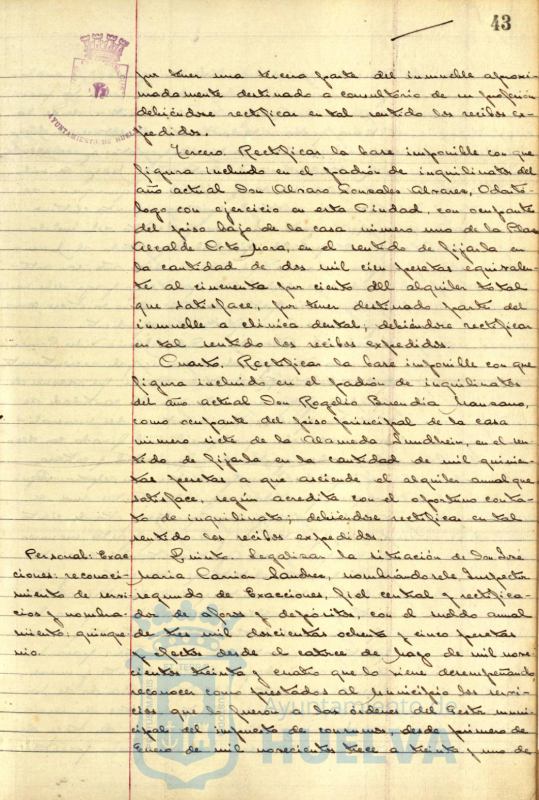 43
AYUNTAMIENTO DE HUELVA
por tener una tercera parte del inmueble aproxi-
madamente destinado a consultorio de su profesión
debiéndose rectificar en tal sentido los recibos ex-
pedidos.
Tercero. Rectificar la base imponible con que
figura incluido en el padrón de inquilinatos del
año actual Don Alvaro Gonzales Alvares, Odontó-
logo con ejercicio en esta Ciudad, con ocupante
del piso bajo de la casa número uno de la Plaza
Alcalde Coto Mora, en el sentido de fijarla en
la cantidad de dos mil cien pesetas equivalen-
te al cincuenta por ciento del alquiler total
que satisface, por tener destinado parte del
inmueble a clínica dental; debiéndose rectificar
en tal sentido los recibos expedidos.
Cuarto. Rectificar la base imponible con que
figura incluido en el padrón de inquilinatos
del año actual Don Rogelio Buendia Manzano,
como ocupante del piso principal de la casa
número siete de la Alameda Sundheim, en el sen-
tido de fijarla en la cantidad de mil quinien-
tas pesetas a que asciende el alquiler anual que
satisface, según acredita con el oportuno contra-
to de inquilinato; debiéndose rectificar en tal
sentido los recibos expedidos.
Personal: Exac-
ciones: reconoci-
miento de servi-
cios y nombra-
miento: quinque-
nio.
Quinto. Legalizar la situación de Don José
Maria Carrion Sandres, nombrándosele Inspector
segundo de Exacciones, fiel central y rectifica-
dor de aforos y depósitos, con el sueldo anual
de tres mil doscientas ochenta y cinco pesetas
y efectos desde el catorce de Mayo de mil nove-
cientos treinta y cuatro que lo viene desempeñando,
reconocer como prestados al Municipio los servi-
cios que lo fueron a las órdenes del Gestor muni-
cipal del impuesto de consumos, desde primero de
Enero de mil novecientos trece a treinta y uno de
Ayuntamiento de
HUELVA